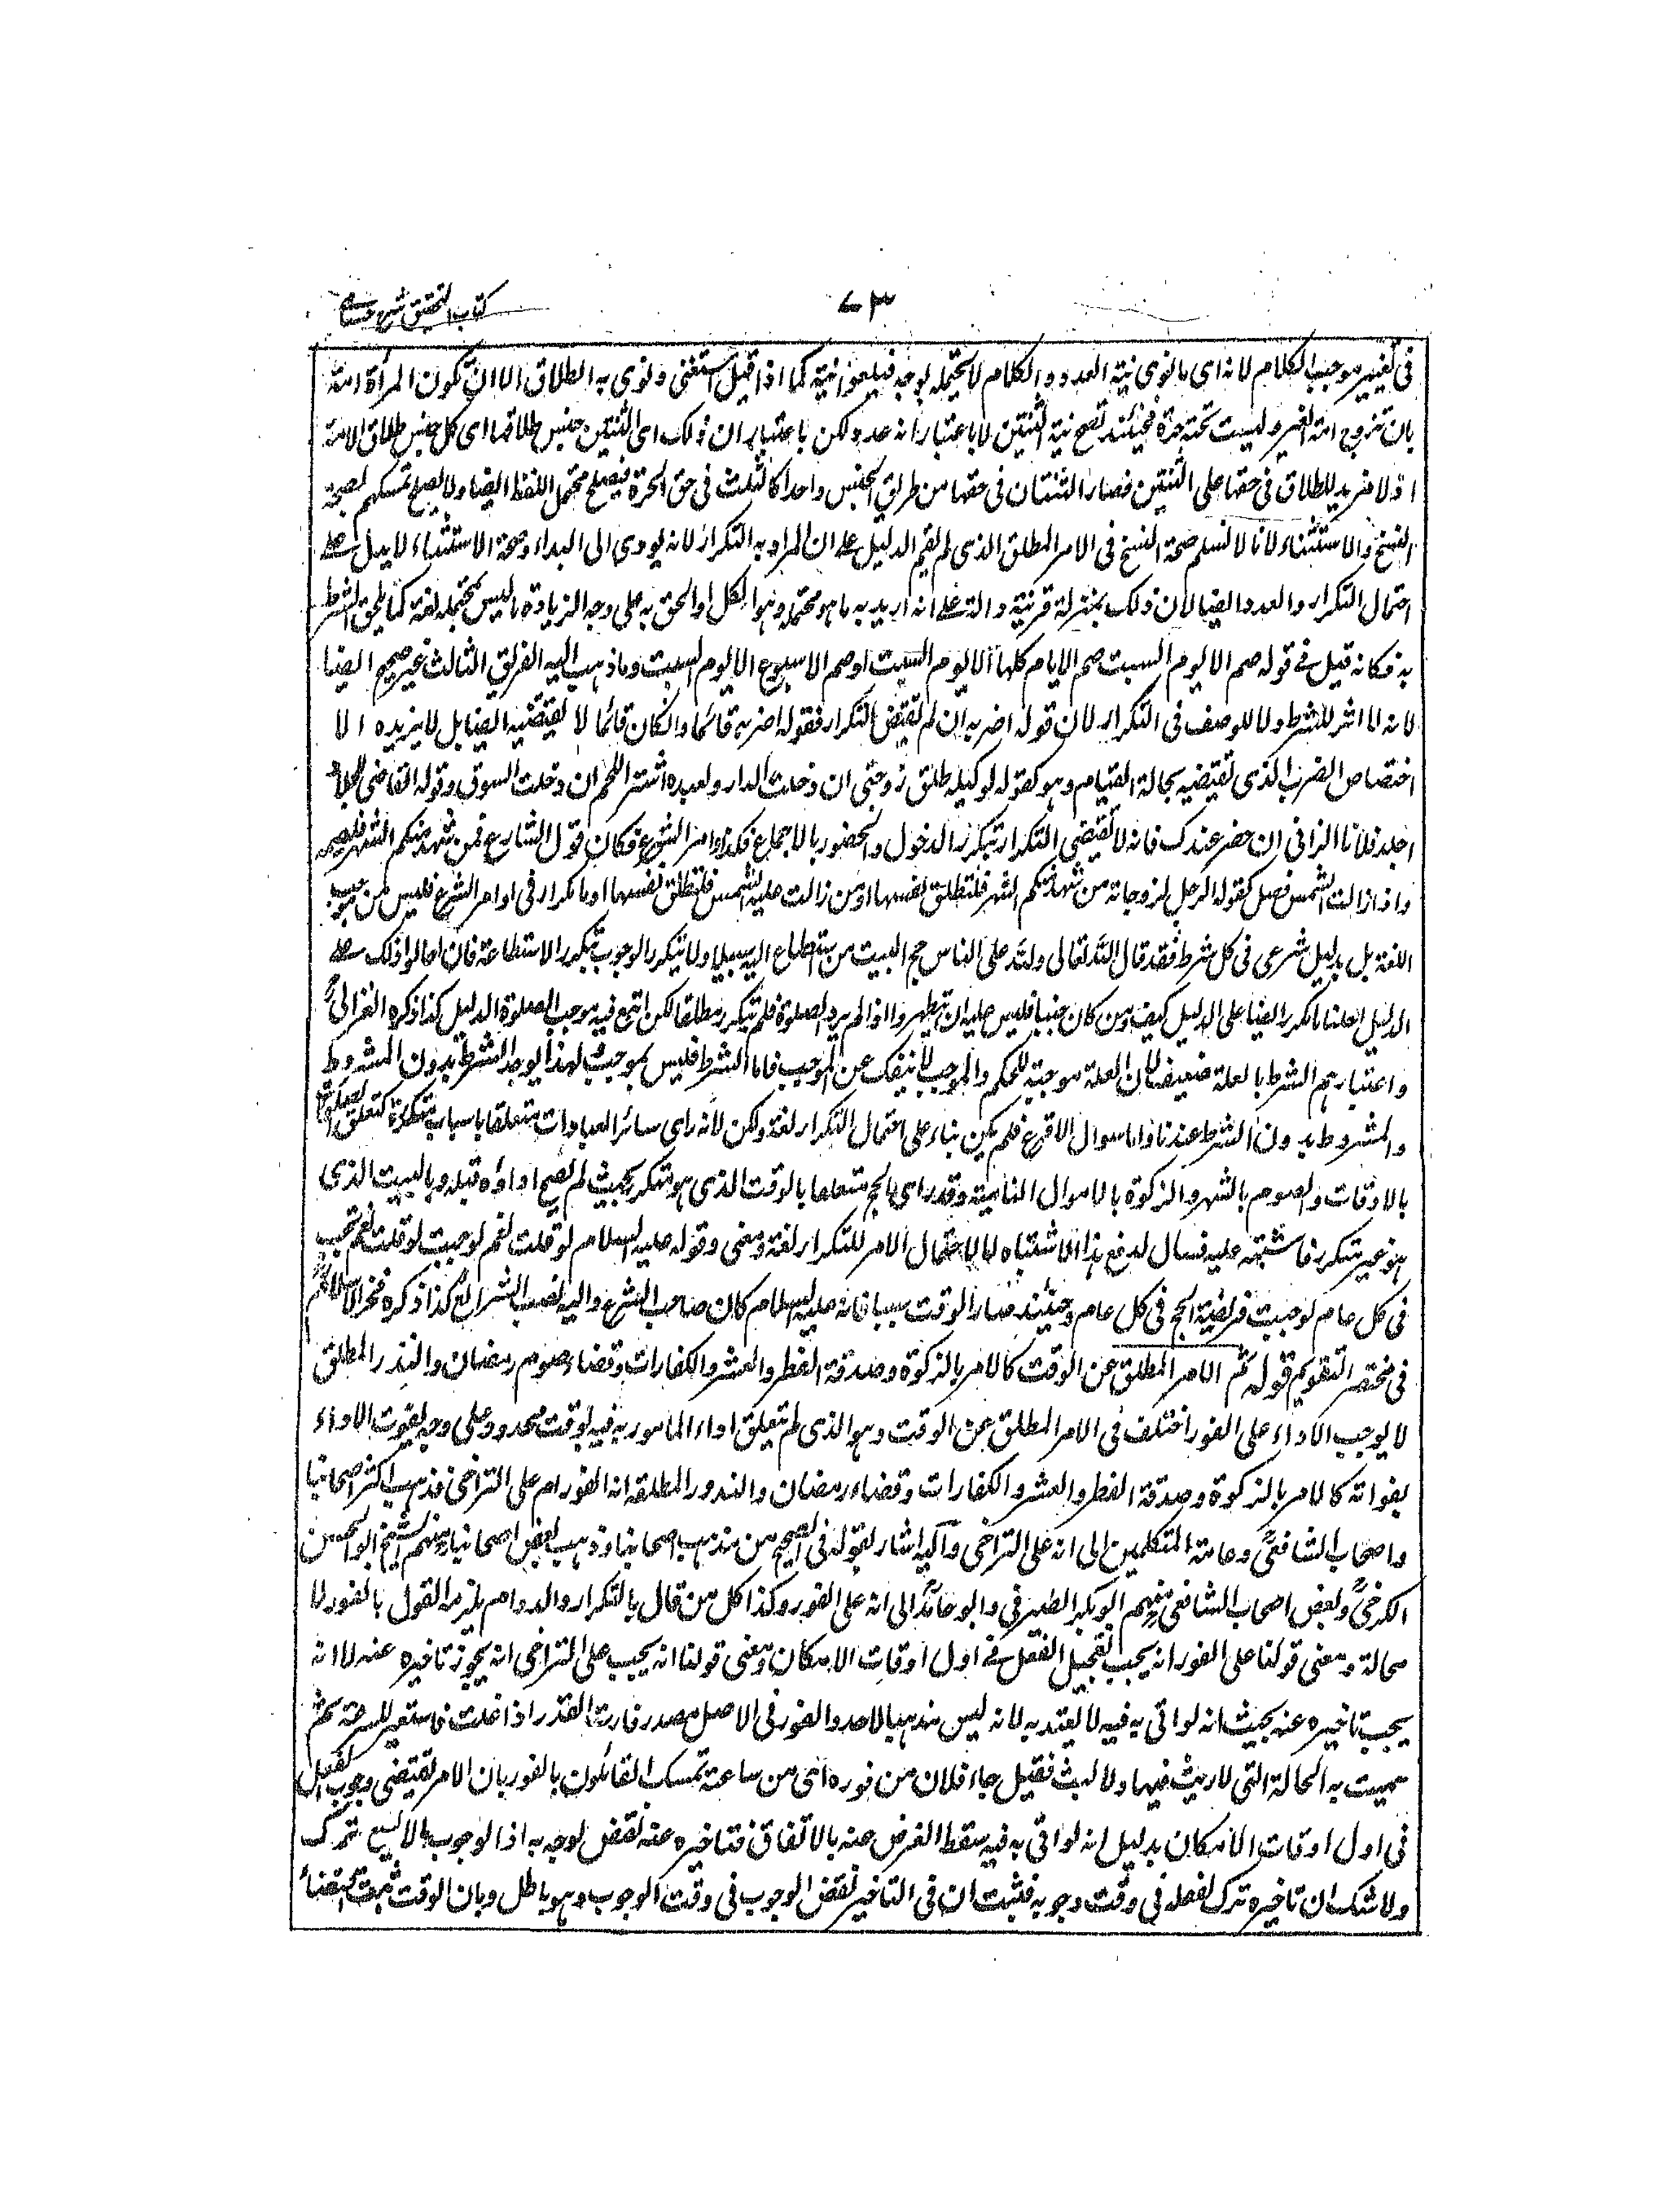 كتاب التحقيق شرح حسامى
٧٣
فى تغيير موجب الكلام لانه اى ما نوى نية العدد و الكلام لا يحتمله بوجه فيلغو نيته كما اذا قيل استغنى و نوى به الطلاق الا ان تكون المرأة امة
بان تزوج امة الغير وليست تحته حرة فحينئذ تصح نية الثنتين لا باعتبار انه عدد ولكن باعتبار ان ذلك اى الثنتين جنس طلاقها اى كل جنس طلاق الامة
اذ لا مزيد للطلاق فى حقها على الثنتين فصار الثنتان فى حقها من طريق الجنس واحدا كالثلث فى حق الحرة فيصلح محتمل اللفظ ايضا ولا يصلح تمسكهم لصحة
الفسخ والاستثناء لانا لا نسلم صحة النسخ فى الامر المطلق الذى لم يقم الدليل على ان المراد به التكرار لانه يودى الى البداء وصحة الاستثناء لا يدل على
احتمال التكرار والعدد ايضا لان ذلك بمنزلة قرينة دالة على انه اريد به ما هو محتمله وهو الكل او الحق به على وجه الزيادة ما ليس بمحتمله لغة كما يلحق الشرط
به فكانه قيل فى قوله صم الا يوم السبت صم الايام كلها الا يوم السبت او صم الاسبوع الا يوم السبت وما ذهب اليه الفريق الثالث غير صحيح ايضا
لانه لا اثر للشرط ولا للوصف فى التكرار لان قوله اضربه ان لم يقتض التكرار فقوله اضربه قائما وان كان قائما لا يقتضيه ايضا بل لا يزيده الا
اختصاص الضرب الذى يقتضيه بحالة القيام وهو كقوله لوكيله طلق زوجتى ان دخلت الدار ولعبده اشتر اللحم ان دخلت السوق وقوله القاضى للجلاد
اجلد فلانا الزانى ان حضر عندك فانه لا يقتضى التكرار بتكرر الدخول والحضور بالاجماع فكذا اوامر الشرع فكان قول الشارع فمن شهد منكم الشهر فليصمه
واذا زالت الشمس فصل كقوله الرجل لزوجاته من شهد منكم الشهر فلتطلق نفسها او من زالت عليه الشمس فلتطلق نفسها او ما تكرار فى اوامر الشرع فليس من موجب
اللغة بل بدليل شرعى فى كل شرط فقد قال الله تعالى ولله على الناس حج البيت من استطاع اليه سبيلا ولا يتكرر الوجوب بتكرر الاستطاعة فان احالوا ذلك على
الدليل احلنا ما تكرر ايضا على الدليل كيف ومن كان جنبا فليس عليه ان يتطهر والا اذا لم يرد الصلوة فلم يتكرر مطلقا لكن اتبع فيه موجب الصلوة الدليل كذا ذكره الغزالىؒ
واعتبارهم الشرط بالعلة ضعيف لان العلة موجبة للحكم والموجب لا ينفك عن الموجب فاما الشرط فليس بموجب ولهذا يوجد الشرط بدون المشروط
والمشروط بدون الشرط عندنا واما سوال الاقرع فلم يكن بناء على احتمال التكرار لغة ولكن لانه راى سائر العبادات متعلقا باسباب متكررة كتعلق الصلوة
بالاوقات والصوم بالشهر والزكوة بالاموال النامية وقد راى الحج متعلقا بالوقت الذى هو متكرر بحيث لم يصح اداؤه قبله وبالبيت الذى
هو غير متكرر فاشتبه عليه فسال لدفع هذا الاشتباه لا لاحتمال الامر للتكرار لغة ومعنى وقوله عليه السلام لو قلت نعم لوجبت لو قلت نعم تجب
فى كل عام لوجبت فريضة الحج فى كل عام وحينئذ صار الوقت سببا فانه عليه السلام كان صاحب الشرع واليه نصب الشرائع كذا ذكره فخر الاسلامؒ
فى مختصر التقويم قوله ثم الامر المطلق عن الوقت كالامر بالزكوة وصدقة الفطر والعشر والكفارات وقضاء صوم رمضان والنذر المطلق
لا يوجب الاداء على الفور اختلف فى الامر المطلق عن الوقت وهو الذى لم يتعلق اداء المامور به فيه بوقت محدود وعلى وجه يفوت الاداء
بفواته كالامر بالزكوة وصدقة الفطر والعشر والكفارات وقضاء رمضان والنذور المطلقة انه الفور ام على التراخى فذهب اكثر اصحابنا
واصحاب الشافعىؒ وعامة المتكلمين الى انه على التراخى واليه اشار بقوله فى الصحيح من مذهب اصحابنا وذهب بعض اصحابنا منهم الشيخ ابو الحسن
الكرخىؒ وبعض اصحاب الشافعىؒ منهم ابو بكر الصيرفى وابو حامد الى انه على الفور وكذا كل من قال بالتكرار والدوام يلزمه القول بالفور لا
محالة ومعنى قولنا على الفور انه يجب تعجيل الفعل فى اول اوقات الامكان ومعنى قولنا انه يجب على التراخى انه يجوز تاخيره عنه لا انه
يجب تاخيره عنه بحيث انه لو اتى به فيه لا يعتد به لانه ليس مذهبا لاحد والفور فى الاصل مصدر فارت القدر اذا غلت فاستعير للسرعة ثم
سميت به الحالة التى لا ريث فيها ولا لبث فقيل جاء فلان من فوره اى من ساعته تمسك القائلون بالفور بان الامر يقتضى وجوب الفعل
فى اول اوقات الامكان بدليل انه لو اتى به فيه سقط الفرض عنه بالاتفاق فتاخيره عنه نقض لوجوبه اذ الوجوب ما لا يسع تركه
ولا شك ان تاخيره ترك لفعله فى وقت وجوبه فثبت ان فى التاخير نقض الوجوب فى وقت الوجوب وهو باطل وبان الوقت ثبت مقتضاء